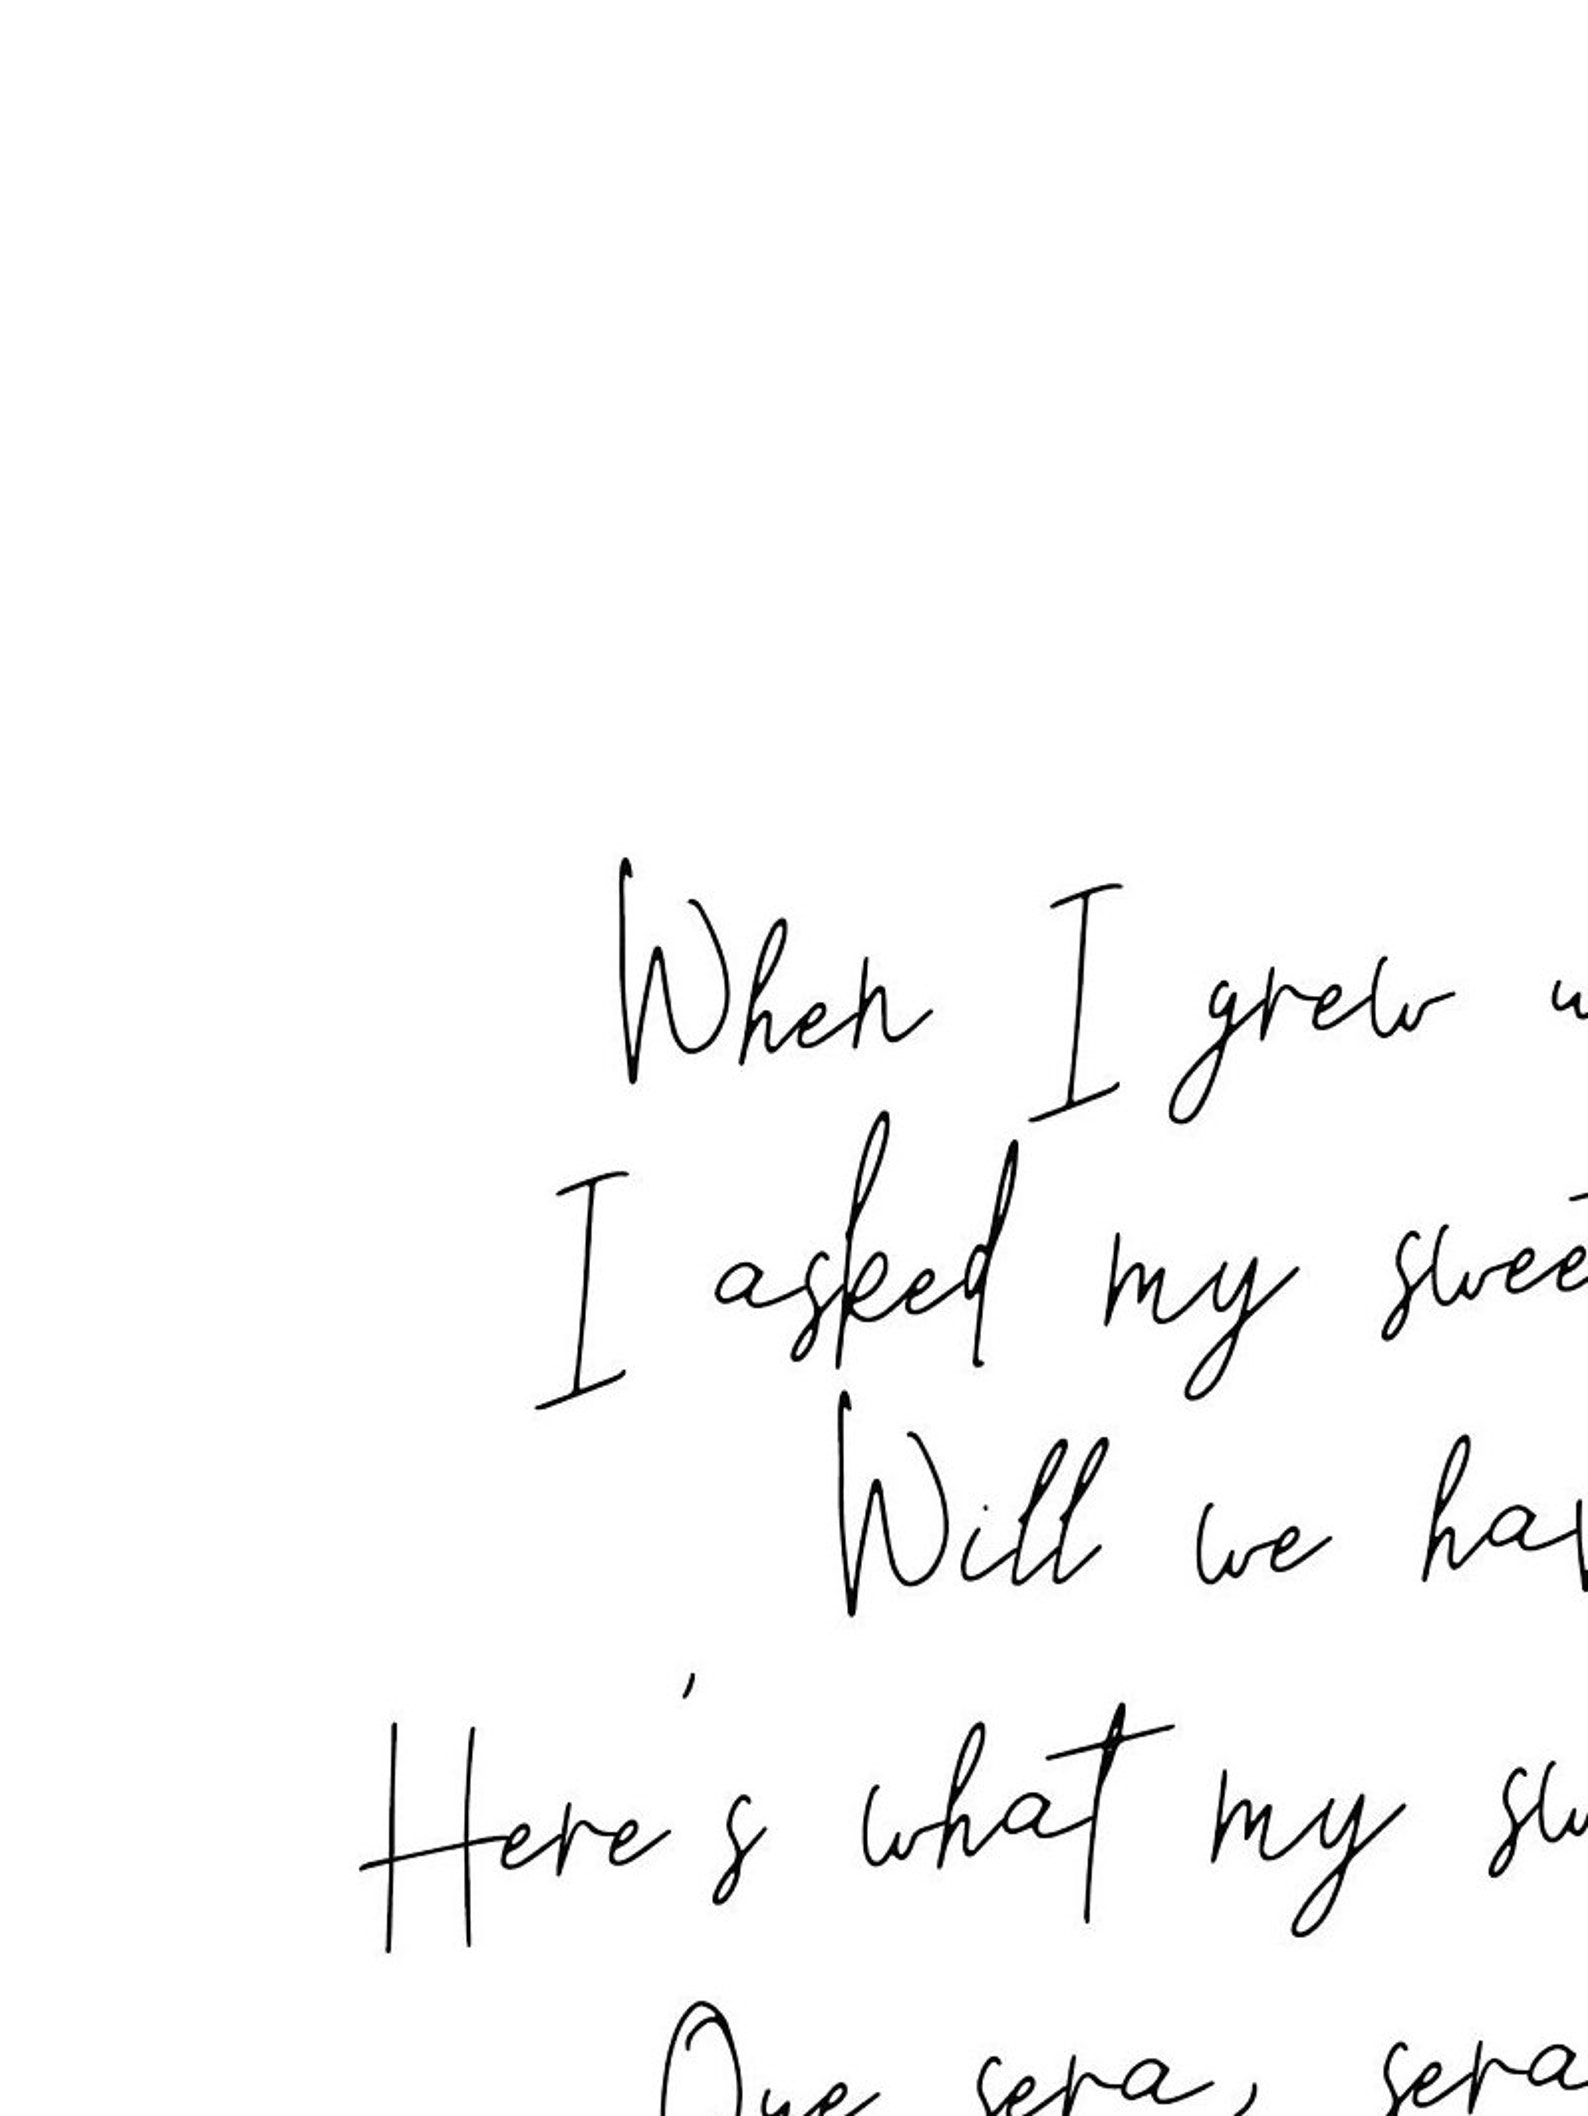 When I grew u
I asked my sweet
Will we hav
Here's what my sw
Que sera, sera